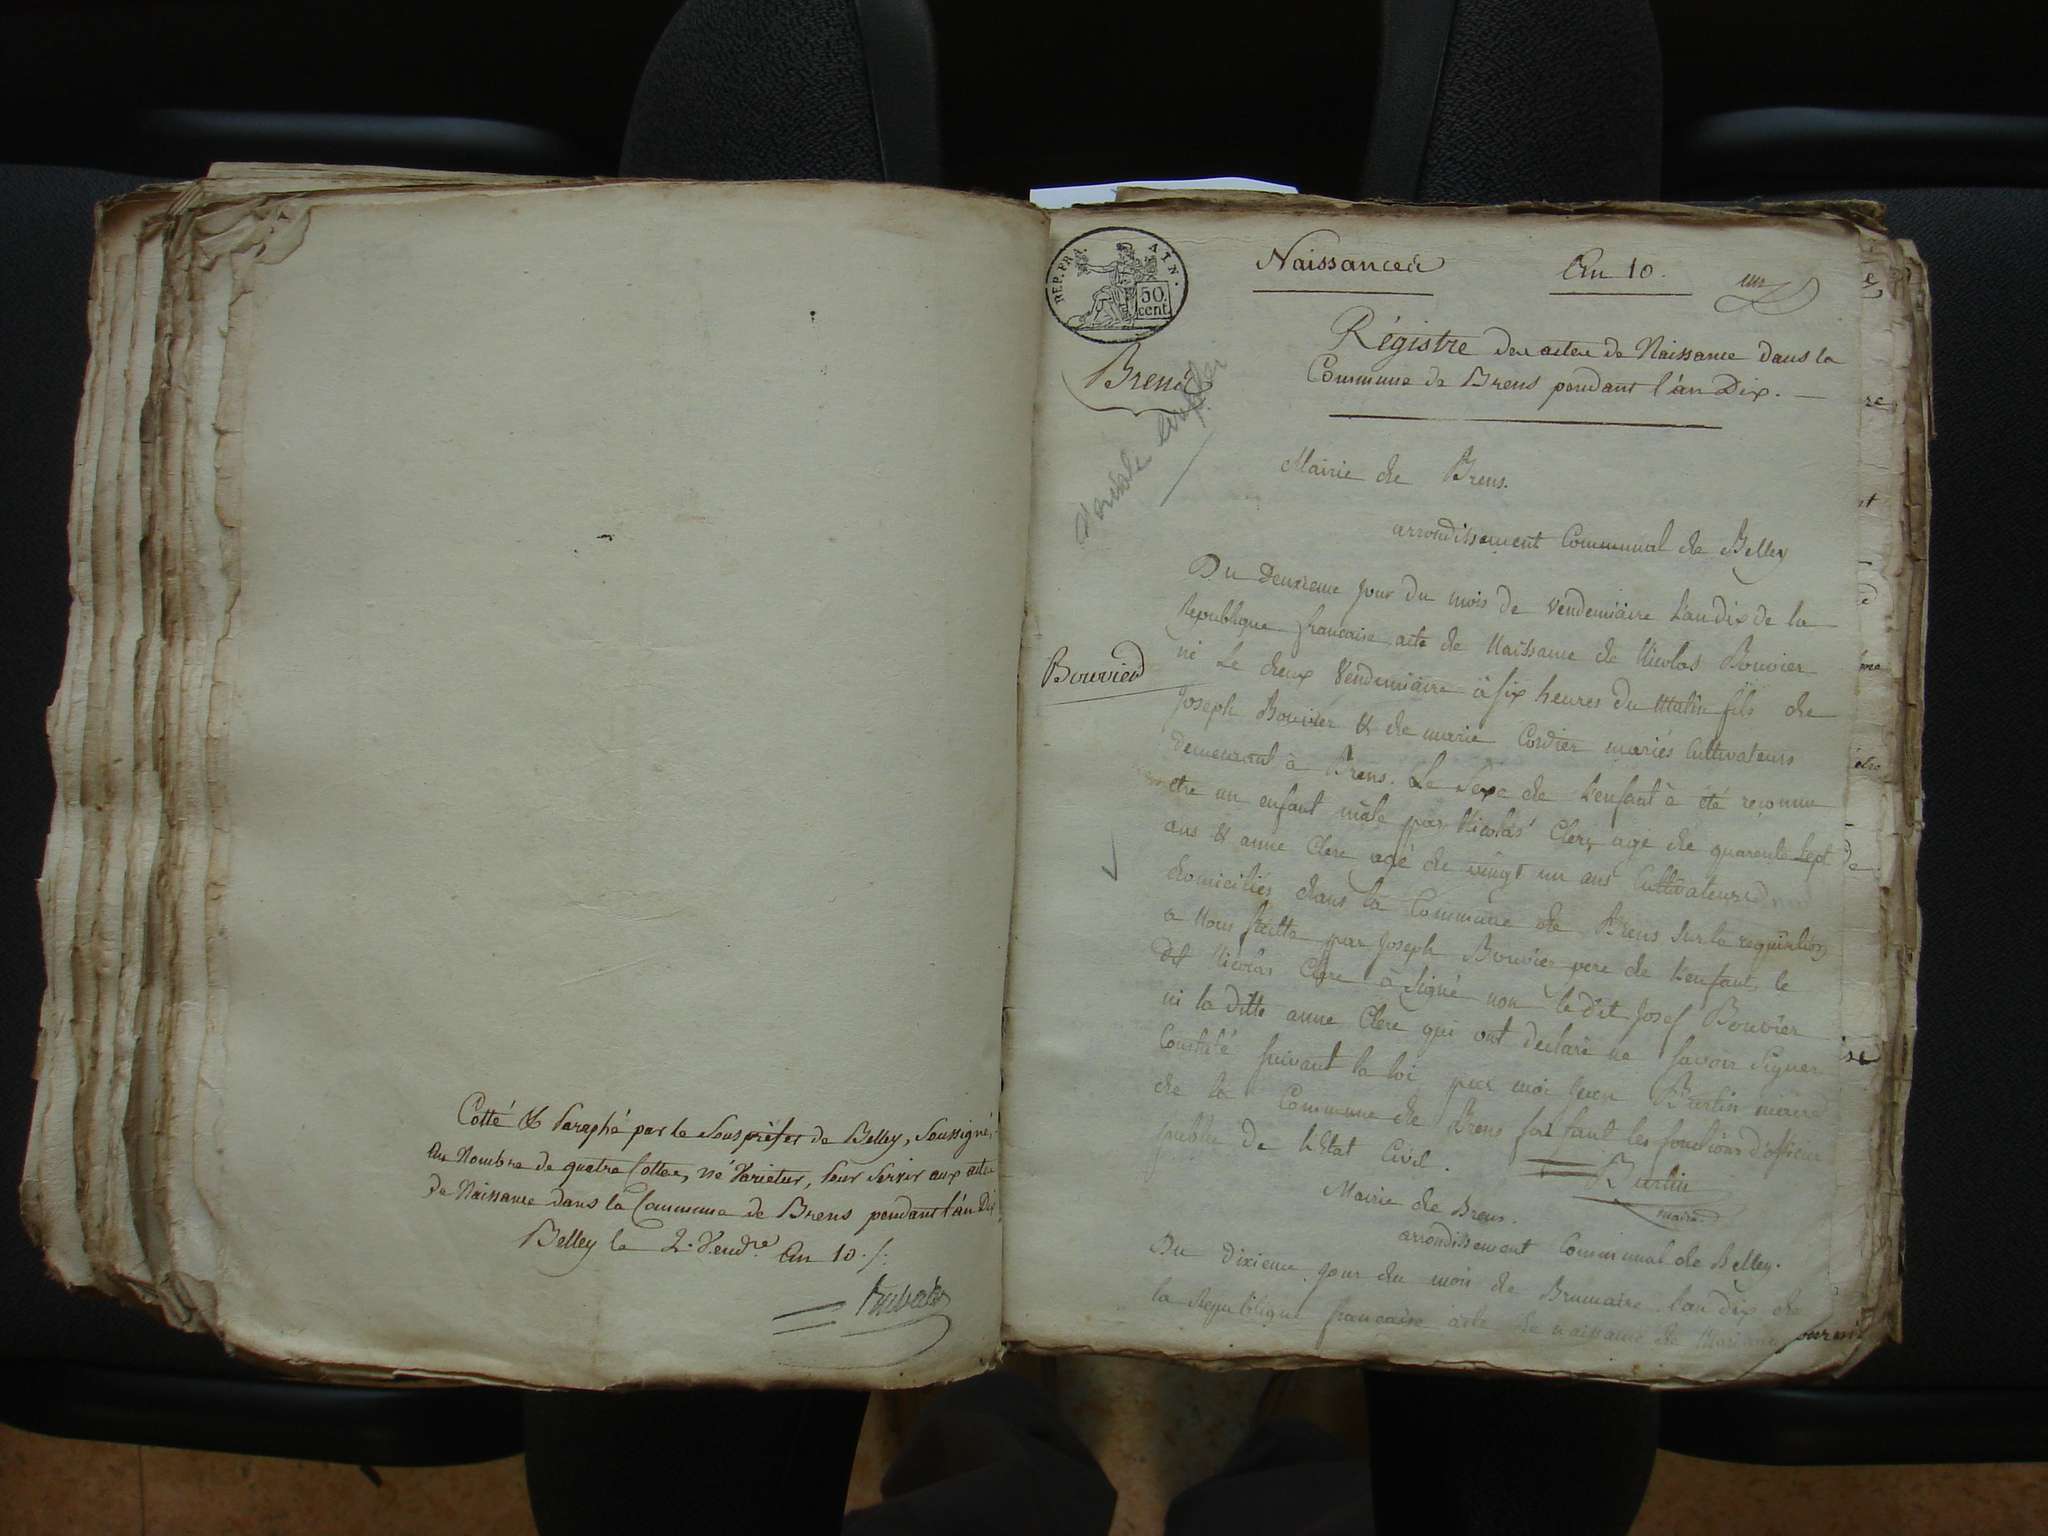 Cotté & Paraphé par le Sous préfet de Belley, Soussigné,
Au Nombre de quatre Cottes, Né Varietur, pour Servir aux actes
de Naissance dans la Commune de Brens pendant l'an Dix,
Belley le 2. Vend.re An 10 ./.
REP. FRA. AIN.
50 cent
Naissances An 10. un
Brens
Régistre des actes de Naissance dans la
Commune de Brens pendant l'an Dix. —
Mairie de Brens.
arrondissement Communal de Belley
Du Deuxieme jour du mois de vendemiaire L'an dix de la
republique francaise, acte de Naissance de Nicolas Bouvier
Bouvier
né Le deux Vendemiaire à six heures du Matin fils de
Joseph Bouvier & de marie Cordier mariés Cultivateurs
demeurant à Brens. Le Sexe de L'enfant à été reconnu
etre un enfant mâle par Nicolas Clerc agé de quarente Sept
ans & anne Clerc agé de vingt un ans Cultivateurs
domiciliés dans la Commune de Brens Sur la requisition
a Nous faitte par Joseph Bouvier pere de L'enfant, le
dit Nicolas Clerc à Signé non le dit Josef Bouvier
ni la ditte anne Clerc qui ont declaré ne Savoir Signer
Constaté Suivant la loi par moi Burtin maire
de la Commune de Brens faisant les fonctions d'officier
public de L'Etat Civil. Burtin
maire
Mairie de Brens.
arrondissement Communal de Belley.
Du Dixieme jour du mois de Brumaire L'an dix de
la Republique francaise acte de naissance de Mariane